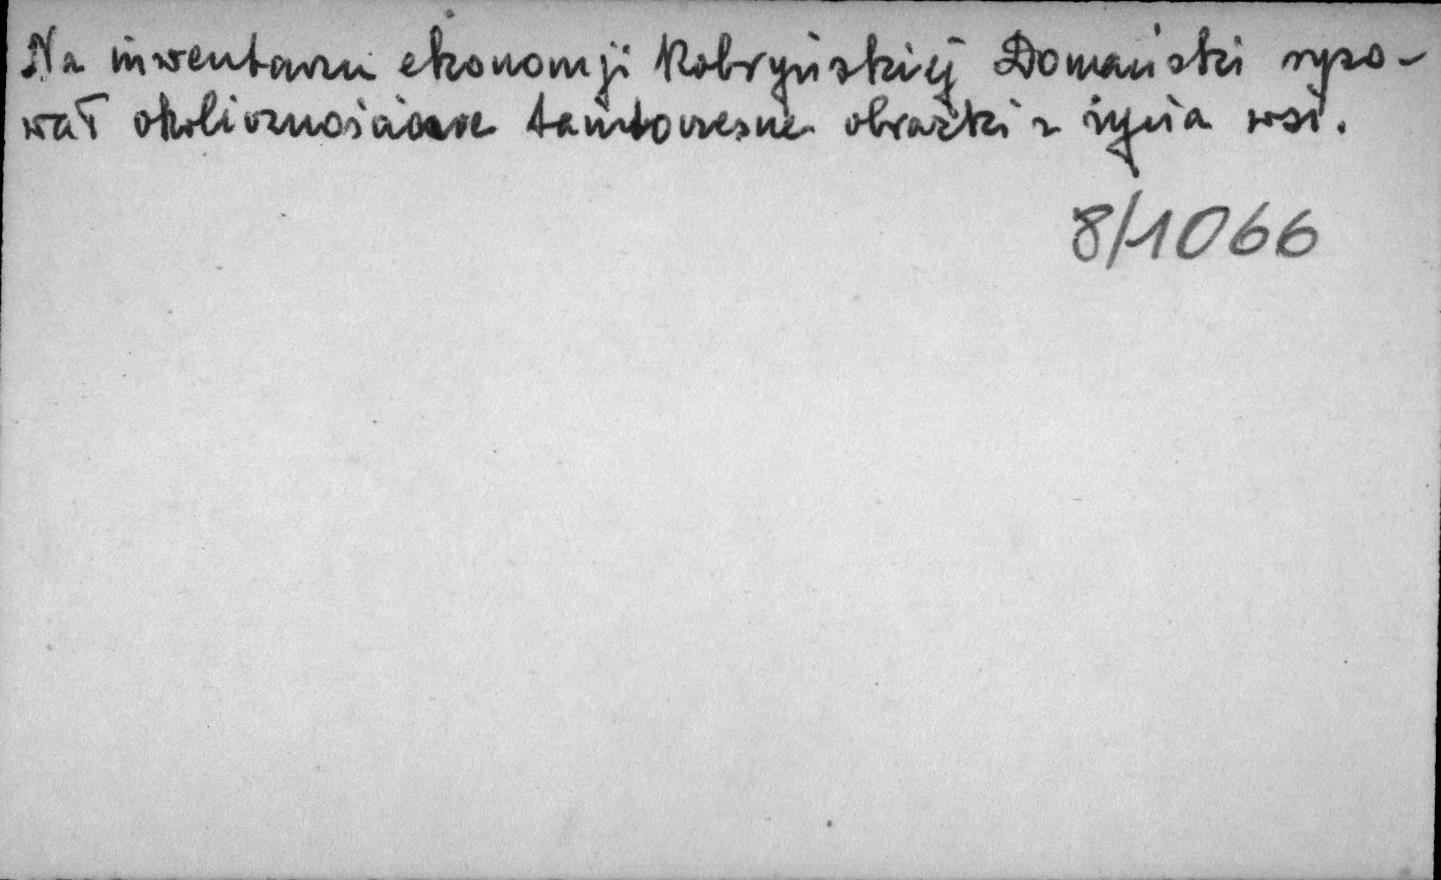 Na inwentarzu ekonomji Kobryńskiej Domański ryso-
wał okolicznościowe tamtoczesne obrazki z życia wsi.
8/1066